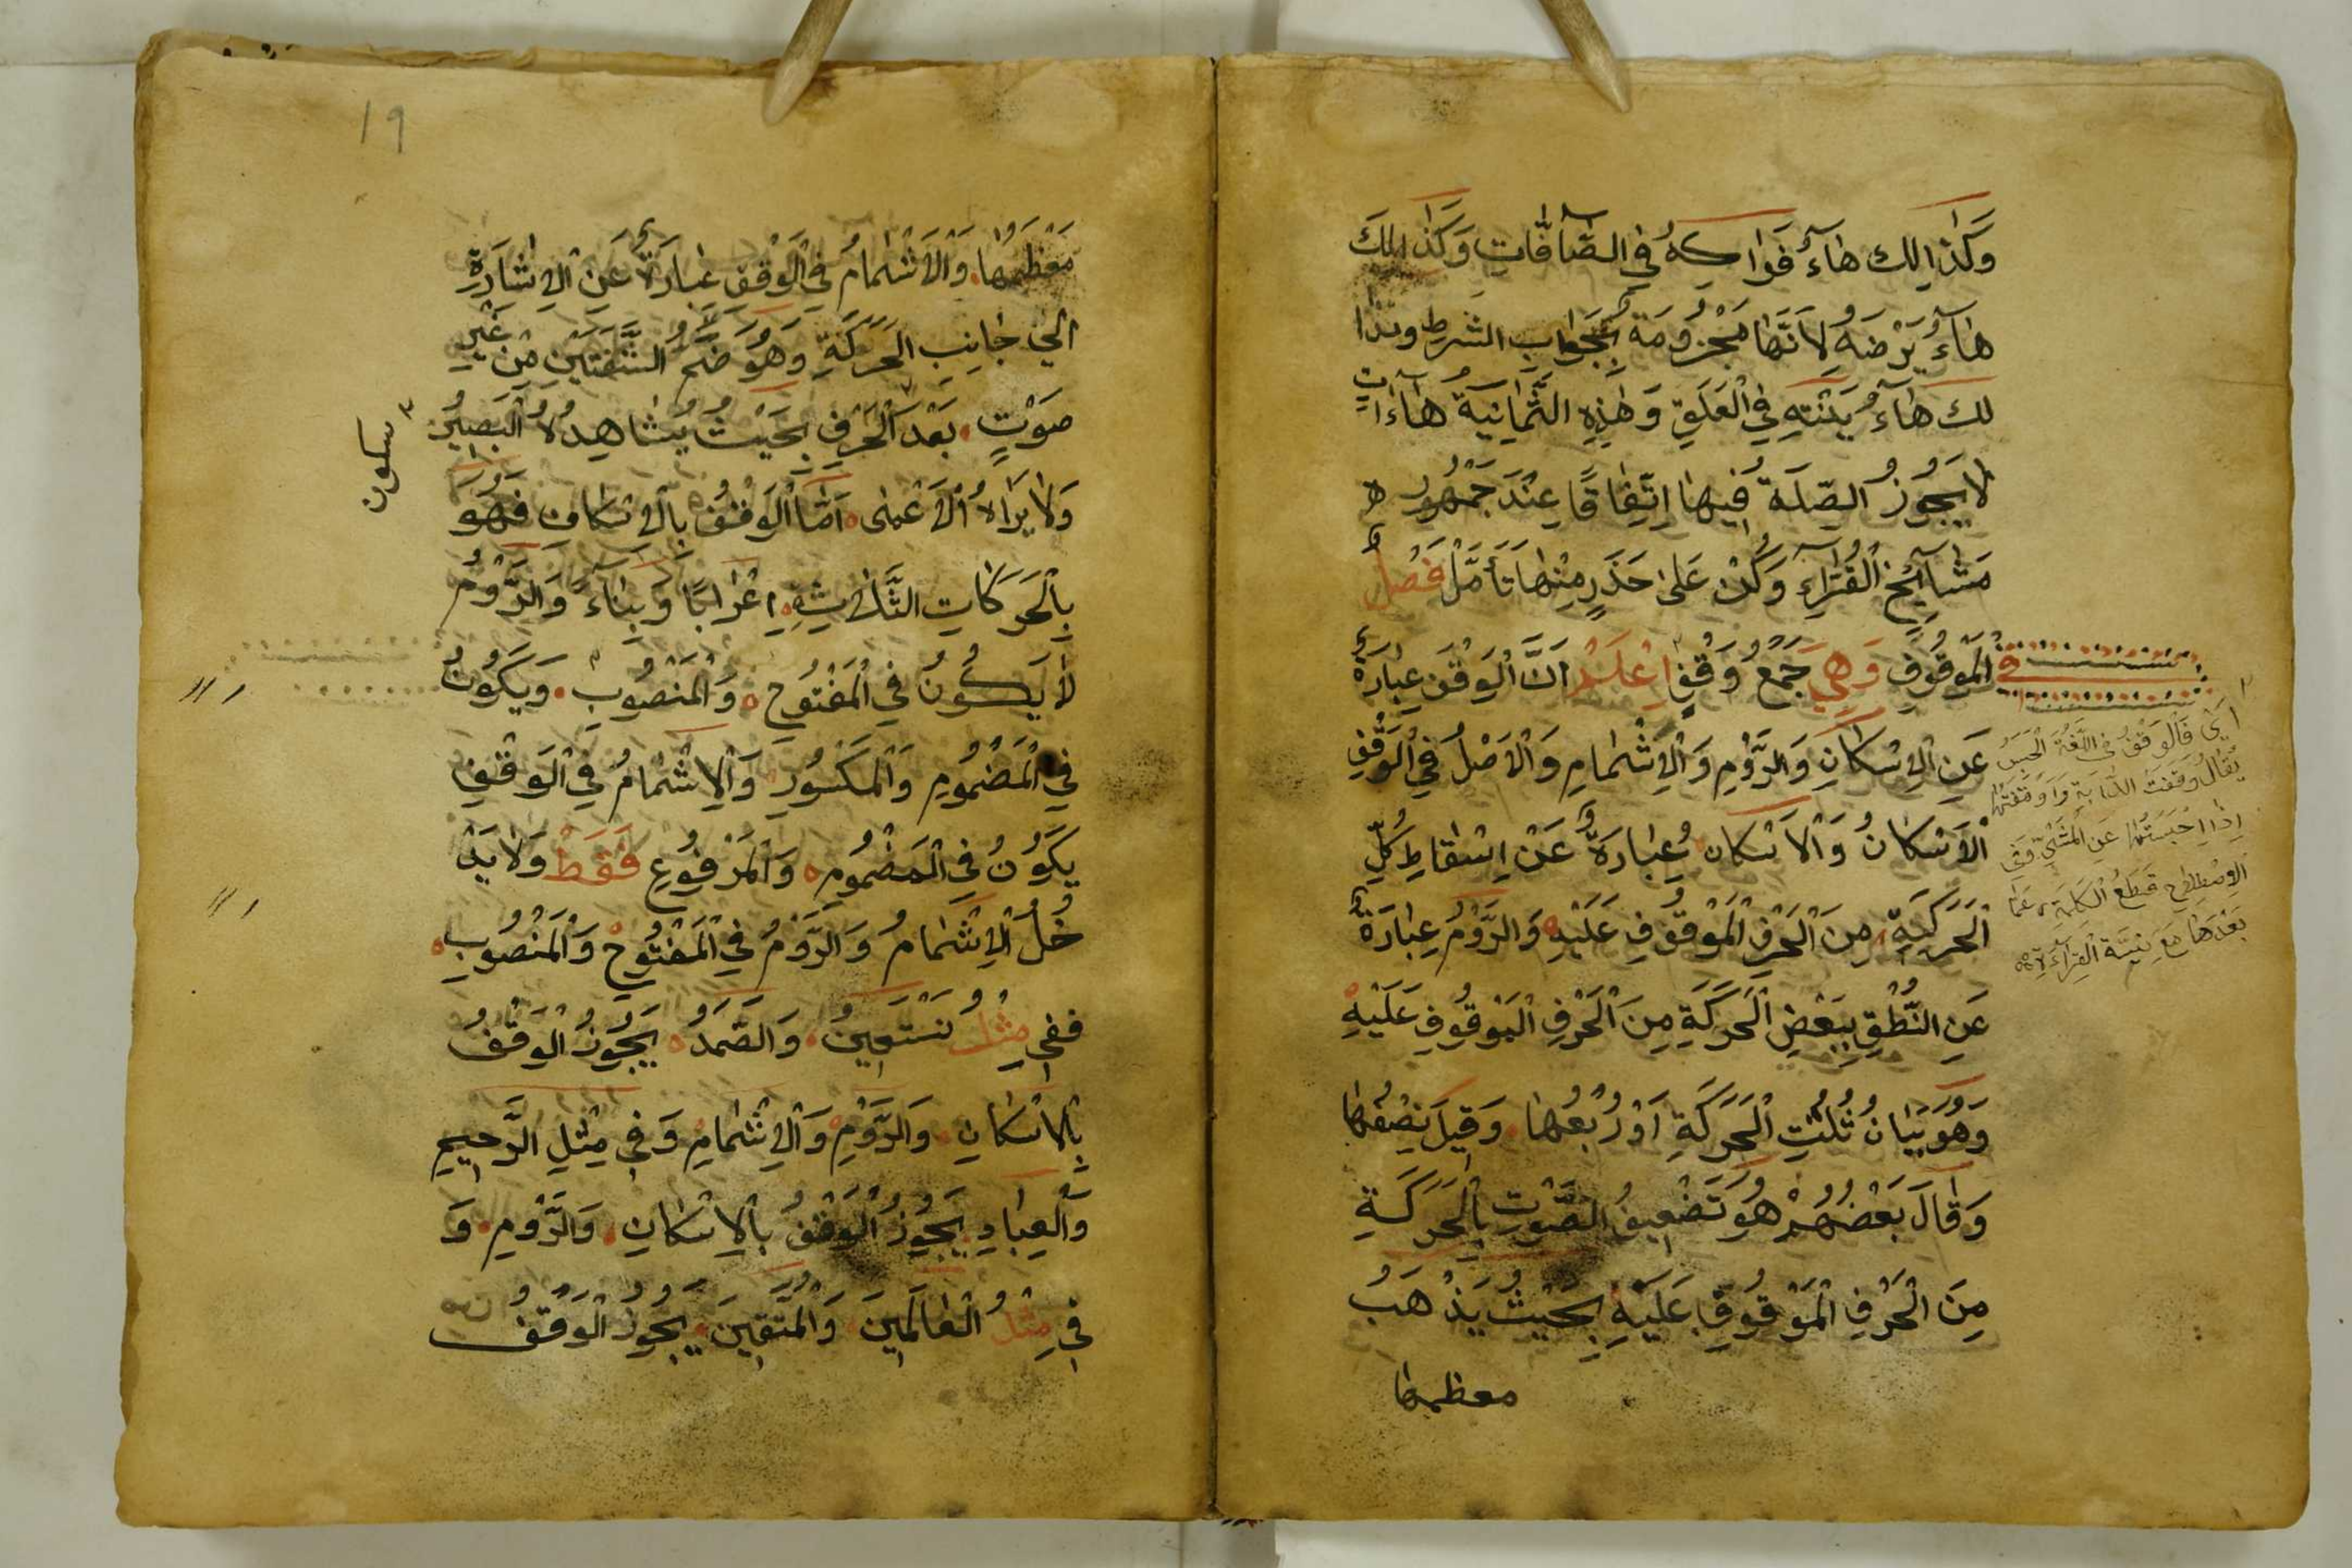 وَكَذٰالِكَ هَاءُ فَوَاكِهُ فِي الصَّآفَّاتِ وَكَذٰالِكَ
هَاءُ يَرْضَهُ لِاَنَّهَا مَجْزُومَةٌ بِجَوَابِ الشَّرْطِ وكذا
لك هَاءُ يَنْتَهِ فِي الْعَلَقِ وَهٰذِهِ الثَّمَانِيَةُ هَاءَاتٍ
لَا يَجُوزُ الصِّلَةُ فِيهَا اِتِّفَاقًا عِنْدَ جَمْهُورِ
مَشَآيِخِ الْقُرَّاءِ وَكُنْ عَلَى حَذَرٍ مِنْهَا تَأَمَّلْ فَصْلٌ
فِي الْمَوْقُوفِ وَهِيَ جَمْعُ وَقْفٍ اِعْلَمْ اَنَّ الْوَقْفَ عِبَارَةٌ
عَنِ الْاِسْكَانِ وَالرَّوْمِ وَالْاِشْمَامِ وَالْاَصْلُ فِي الْوَقْفِ
الْاِسْكَانُ وَالْاِسْكَان عِبَارَةٌ عَنْ اِسْقَاطِ كُلِّ
الْحَرَكَةِ مِنَ الْحَرْفِ الْمَوْقُوفِ عَلَيْهِ وَالرَّوْمُ عِبَارَةٌ
عَنِ النُّطْقِ بِبَعْضِ الْحَرَكَةِ مِنَ الْحَرْفِ الْمَوْقُوفِ عَلَيْهِ
وَهُوَ بَيَانُ ثُلُثِ الْحَرَكَةِ اَوْ رُبْعُهَا وَقِيلَ نِصْفُهَا
وَقَالَ بَعْضُهُمْ هُوَ تَضْعِيفُ الصَّوْتِ بِالْحَرَكَةِ
مِنَ الْحَرْفِ الْمَوْقُوفِ عَلَيْهِ بِحَيْثُ يَذْهَبُ
معظمها
اَيْ فَالْوَقْفُ فِي اللُّغَةِ الْحَبْسُ
يُقَالُ وَقَفْتُ الدَّابَةِ وَاَوْقَفْتُهَا
اِذَا حَبَسْتُهَا عَنِ الْمَشْيِ وَفِي
الْاِصْطِلَاحِ قَطْعُ الْكَلِمَةِ عَمَّا
بَعْدَهَا مَعَ نِيَّةِ الْقِرَاءَةِ
19
مُعْظَمُهَا وَالْاِشْمَامُ فِي الْوَقْفِ عِبَارَةٌ عَنِ الْاِشَارَةِ
اِلَى جَانِبِ الْحَرَكَةِ وَهُوَ ضَمُّ الشَّفَتَيْنِ مِنْ غَيْرِ
صَوْتٍ بَعْدَ الْحَرْفِ بِحَيْثُ يُشَاهِدُهُ الْبَصِيرُ
وَلَا يَرَاهُ الْاَعْمَى اَمَّا الْوَقْفُ بِالْاِسْكَانِ فَهُوَ
بِالْحَرَكَاتِ الثَّلٰثَةِ اِعْرَابًا وَبِنَاءً وَالرَّوْمُ
لَا يَكُونُ فِي الْمَفْتُوحِ وَالْمَنْصُوبِ وَيَكُونُ
فِي الْمَضْمُومِ وَالْمَكْسُورِ وَالْاِشْمَامُ فِي الْوَقْفِ
يَكُونُ فِي الْمَضْمُومِ وَالْمَرْفُوعِ فَقَطْ وَلَا يَدْ
خُلُ الْاِشْمَامُ وَالرَّوْمُ فِي الْمَفْتُوحِ وَالْمَنْصُوبِ
ففِي مِثْلِ نَسْتَعِينُ وَالصَّمَدُ يَجُوزُ الْوَقْفُ
بِالْاِسْكَانِ وَالرَّوْمِ وَالْاِشْمَامِ وَفِي مِثْلِ الرَّحِيمِ
وَالْعِبَادِ يَجُوزُ الْوَقْفُ بِالْاِسْكَانِ وَالرَّوْمِ وَ
فِي مِثْلِ الْعَالَمِينَ وَالْمُتَّقِينَ يَجُوزُ الْوَقْفُ